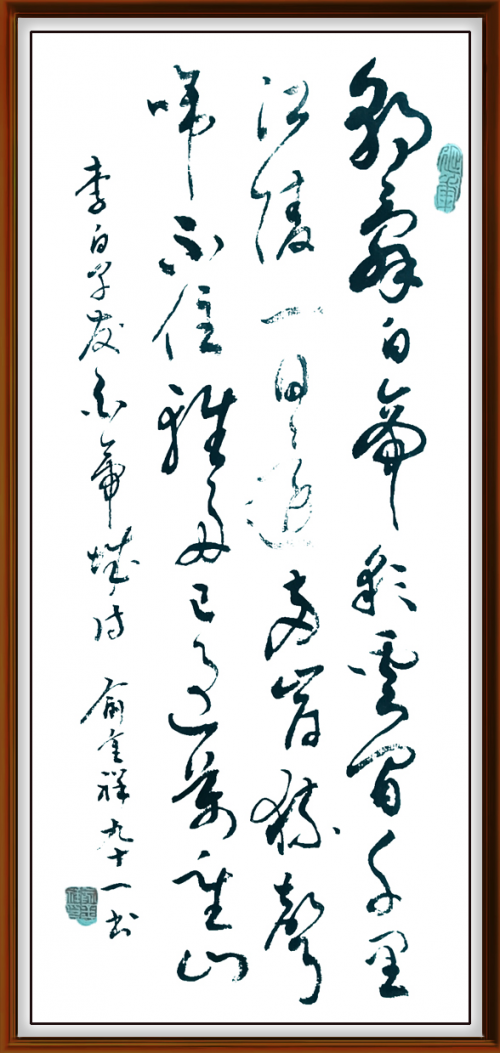 朝辭白帝彩雲間千里
江陵一日還兩岸猿聲
啼不住輕舟已過萬重山
李白早發白帝城詩 俞祥九十一書